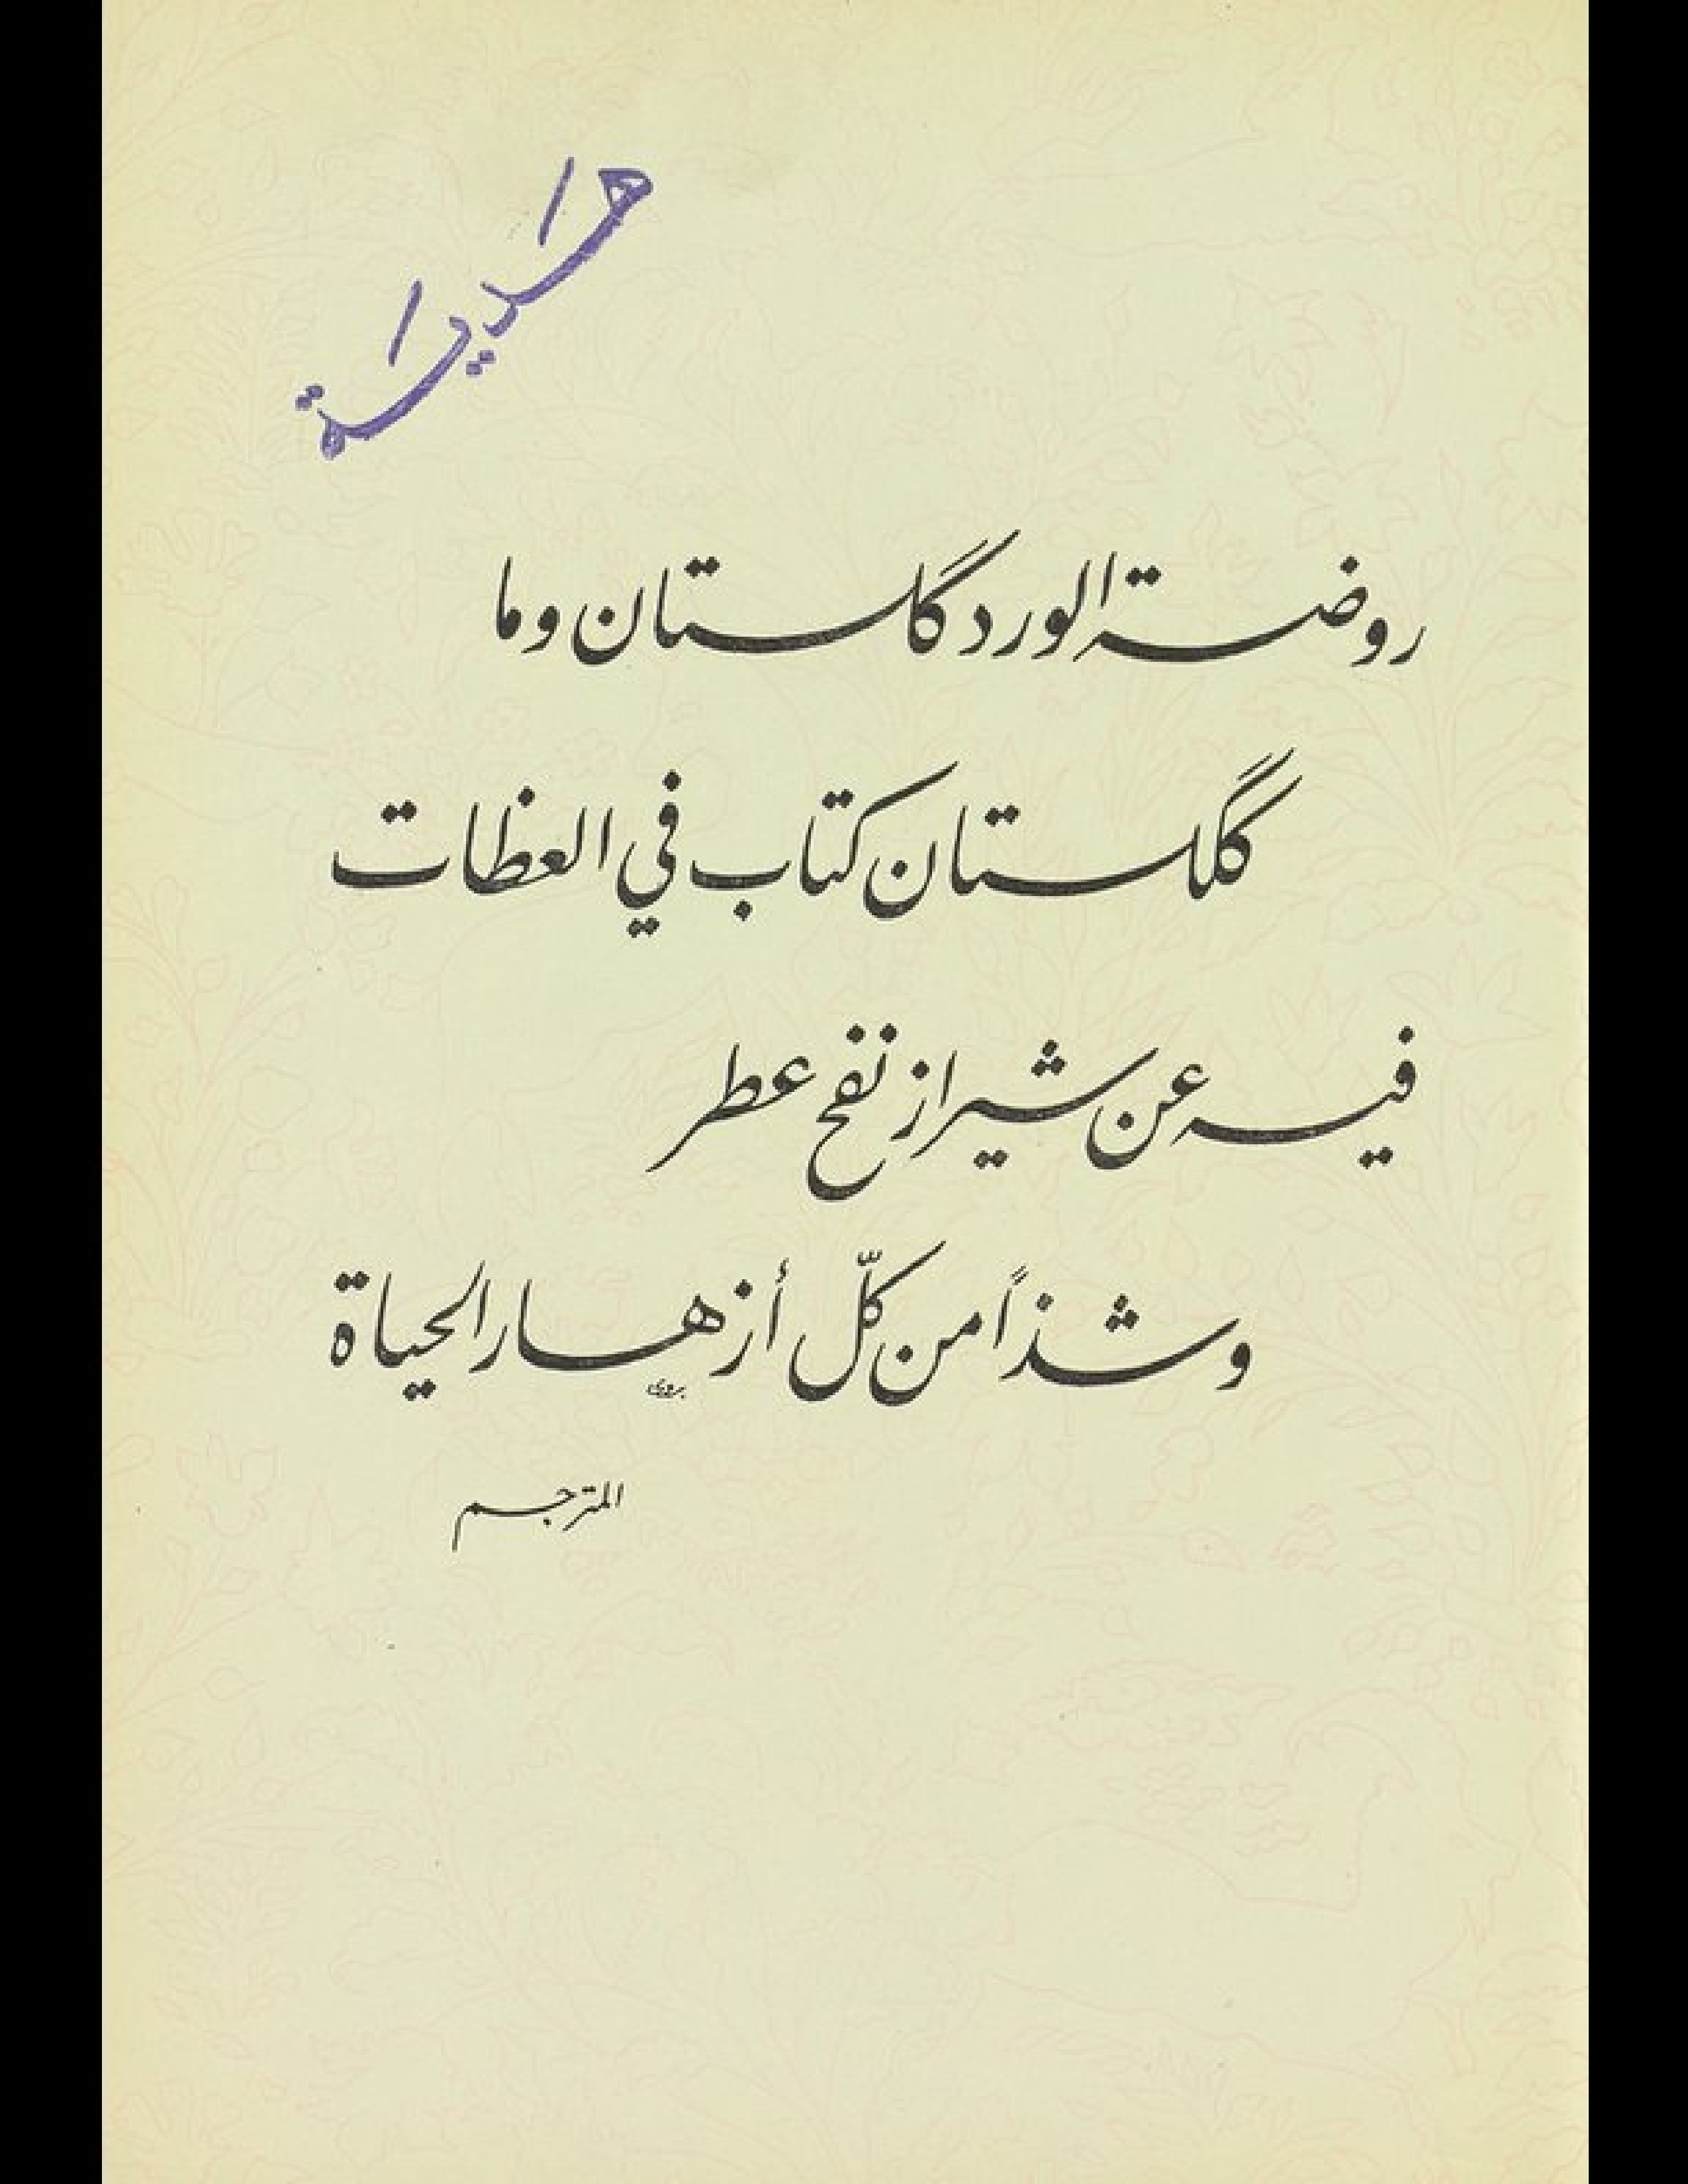 هدية
روضة الورد گلستان وما
گلستان كتاب في العظات
فيه عن شيراز نفح عطر
وشذاً من كلّ أزهار الحياة
بدوي
المترجم